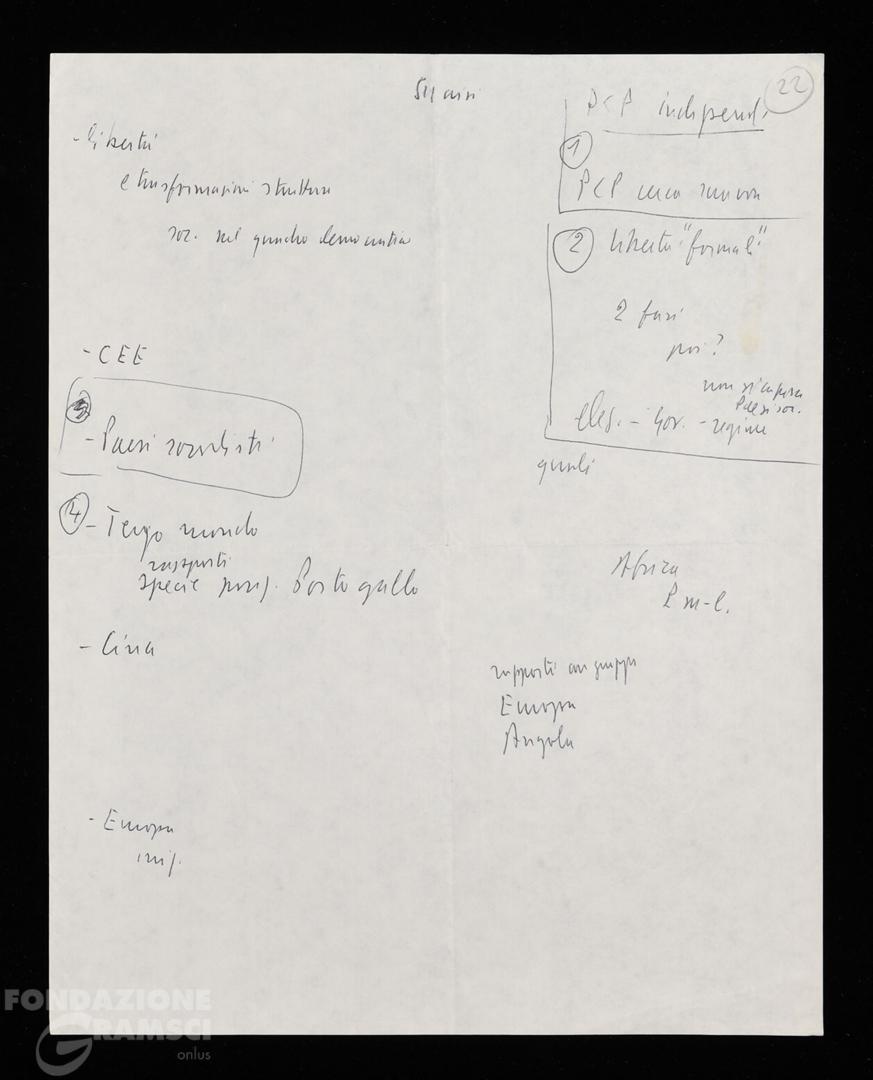 22
- libertà
e trasformazioni struttur
soc. nel quadro democratico
- CEE
3
- Paesi socialisti
4
- Terzo mondo
rapporti
specie Portogallo
- Cina
- Europa
PCP independ.
1
PCP cerca
2 libertà "formali"
2 fasi
poi?
non si
Paesi soc.
elez. - Gov. - regime
quali
Africa
P m-l.
rapporti con gruppi
Europa
Angola
FONDAZIONE
GRAMSCI
onlus